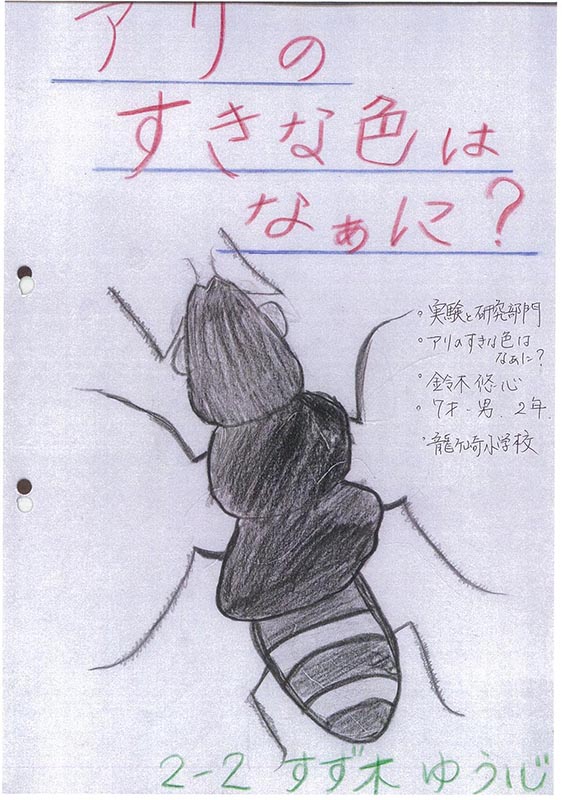 アリの
すきな色は
なぁに?
。実験と研究部門
。アリのすきな色は
なぁに?
。鈴木悠心
。7才-男.2年.
。龍ヶ崎小学校
2-2 すず木 ゆう心